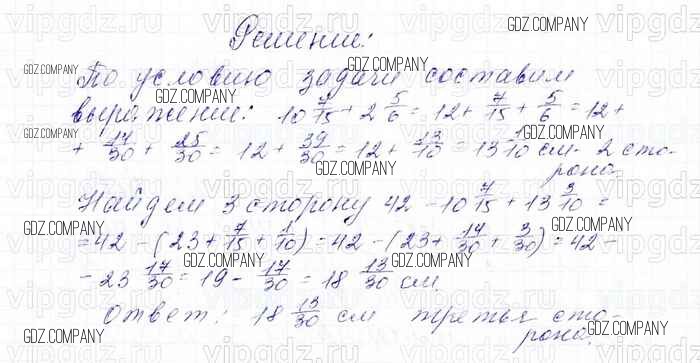 GDZ.COMPANY
Решение:
GDZ.COMPANY GDZ.COMPANY
По условию задачи составим
GDZ.COMPANY
выражение: 10 7/15 + 2 5/6 = 12 + 7/15 + 5/6 = 12 +
GDZ.COMPANY GDZ.COMPANY
+ 14/30 + 25/30 = 12 + 39/30 = 12 + 13/10 = 13 1/10 см - 2 сто-
GDZ.COMPANY
рона.
Найдем 3 сторону 42 - 10 7/15 + 13 3/10 =
GDZ.COMPANY GDZ.COMPANY
= 42 - (23 + 7/15 + 1/10) = 42 - (23 + 14/30 + 3/30) = 42 -
GDZ.COMPANY GDZ.COMPANY
- 23 17/30 = 19 - 17/30 = 18 13/30 см.
Ответ: 18 13/30 см третья сто-
GDZ.COMPANY GDZ.COMPANY
рона.